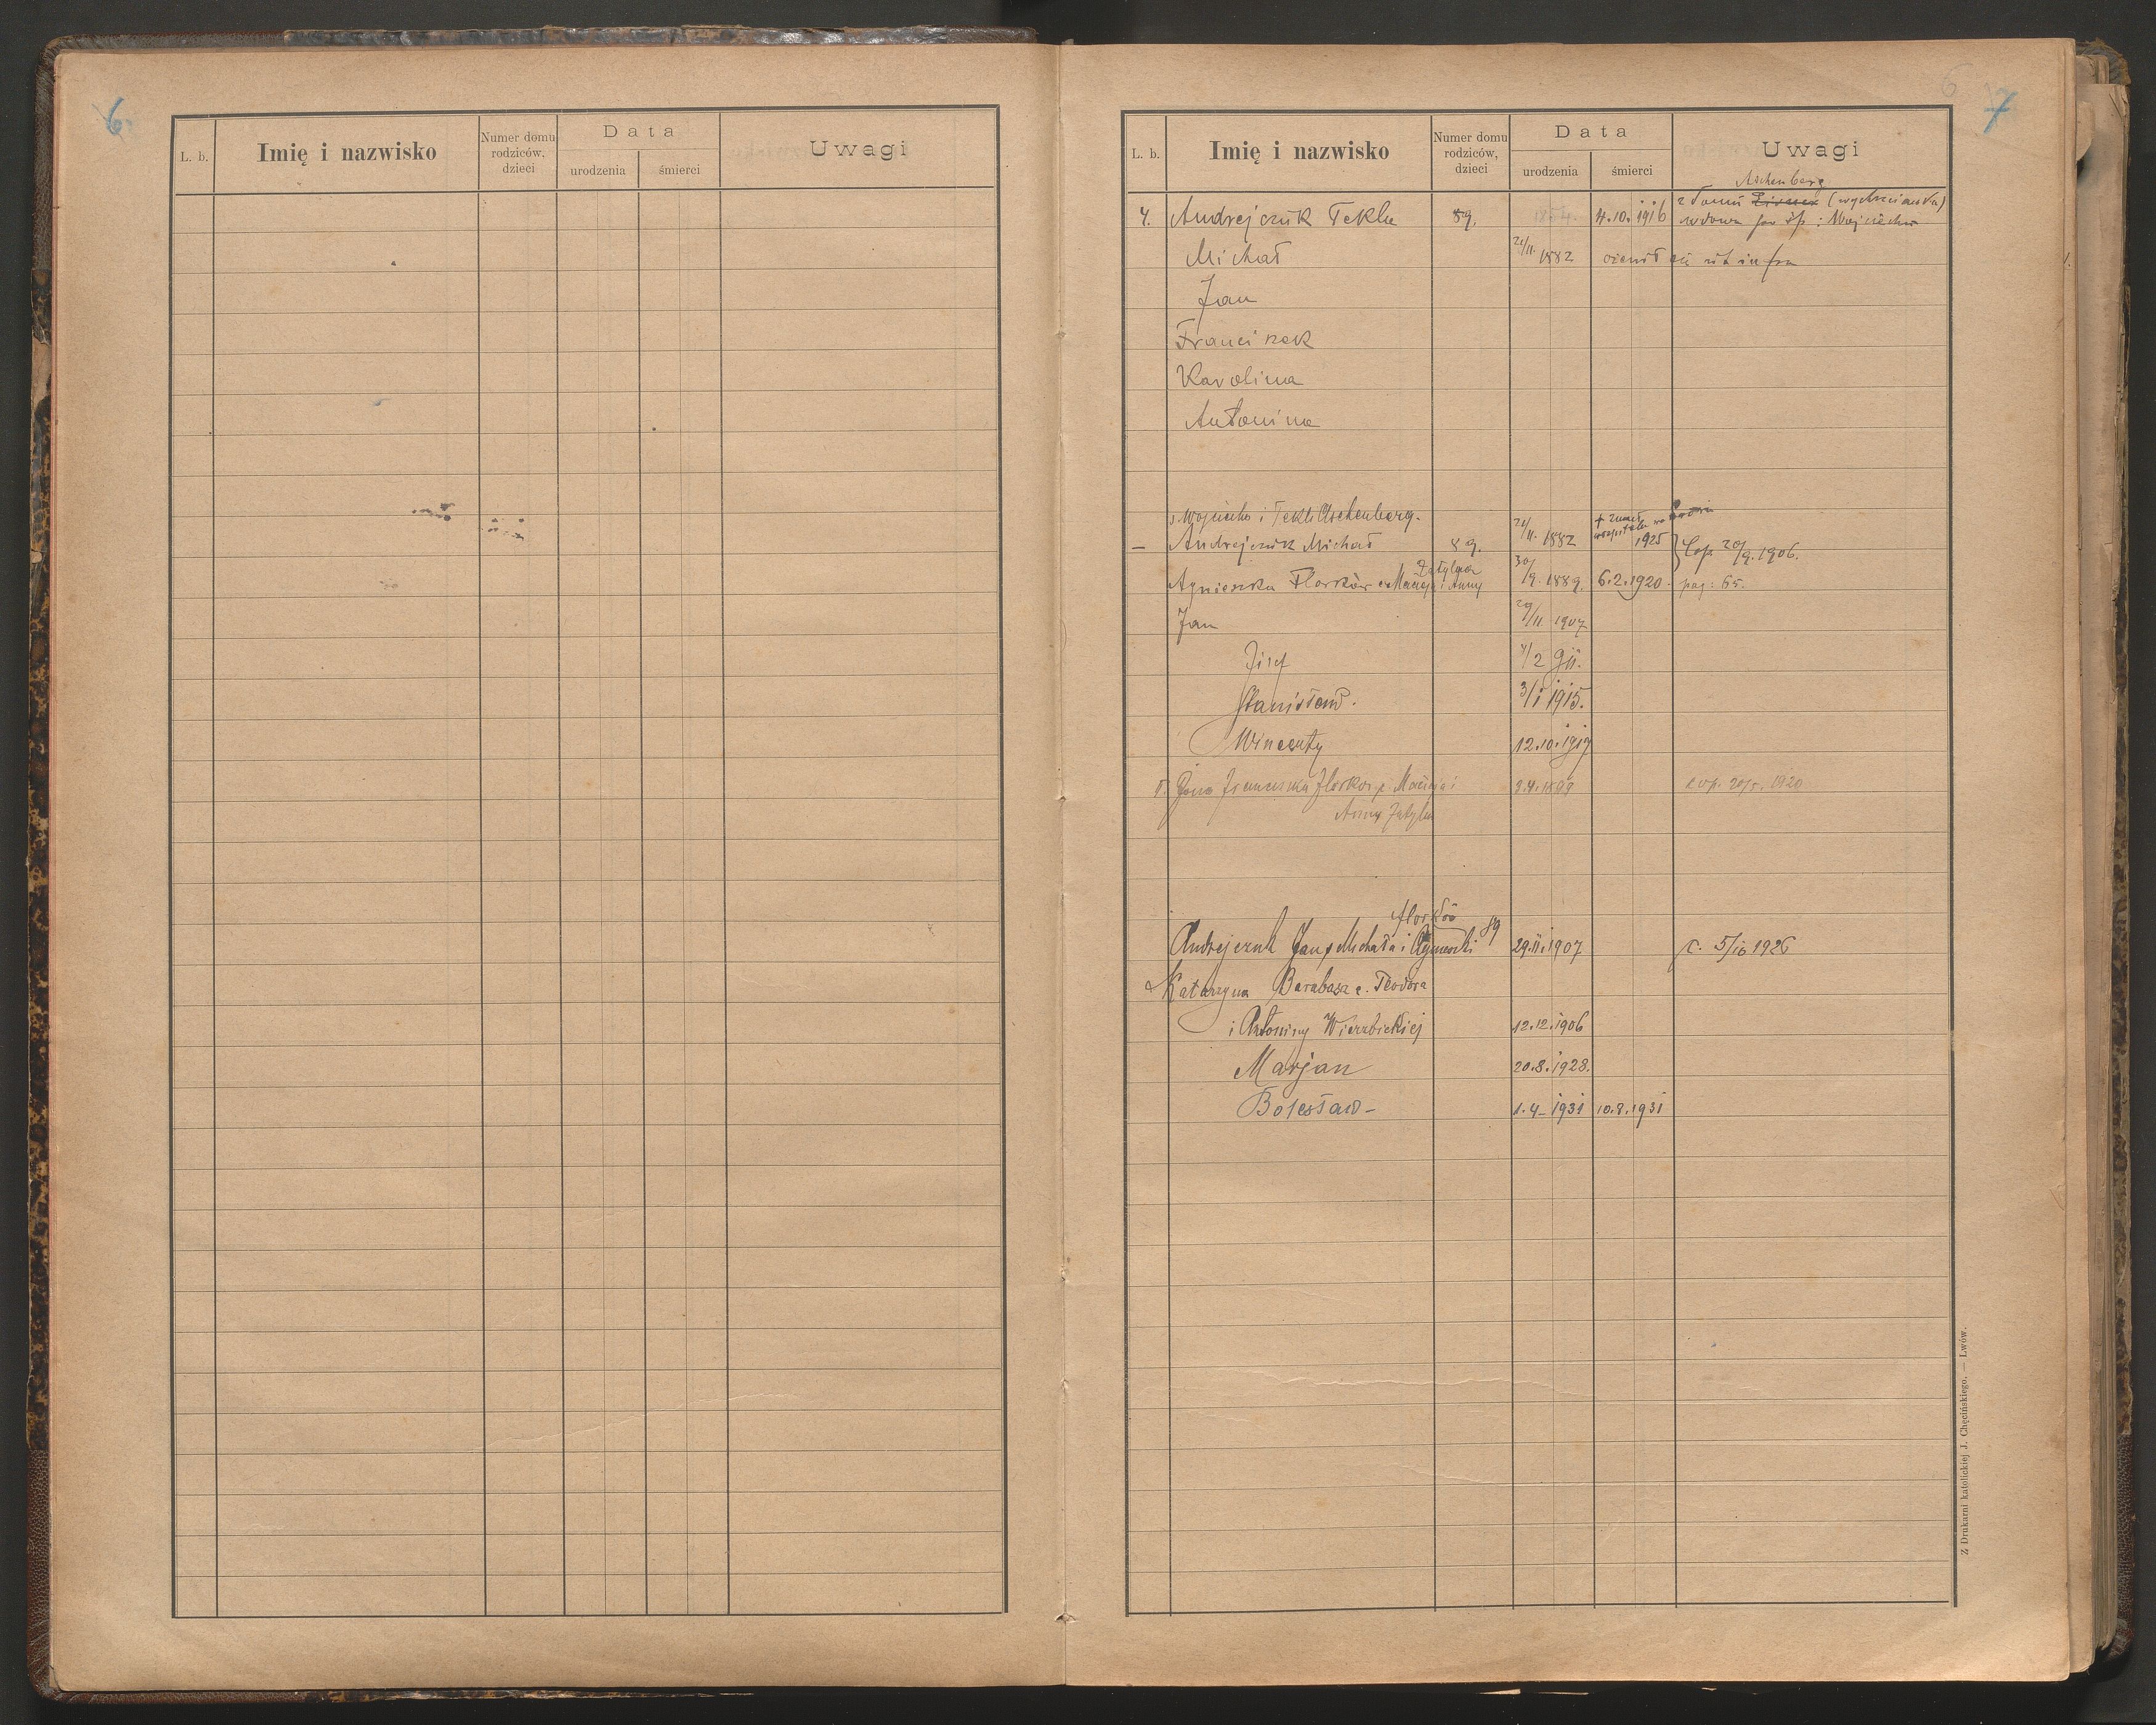 6.
L. b. Imię i nazwisko Numer domu rodziców, dzieci Data urodzenia śmierci Uwagi
6 7
L. b. Imię i nazwisko Numer domu rodziców, dzieci Data urodzenia śmierci Uwagi
Aschenberg
4. Andrejczuk Tekla 89. 4.10.1916 z domu (wychrzcianka)
wdowa po śp: Wojciechu
Michał 21/11. 1882 ożenił się ut infra
Jan
Franciszek
Karolina
Antonina
s. Wojciecha i Tekli Aschenberg.
+ zmarł w szpitalu we Lwowie
– Andrejczuk Michał 89. 21/11. 1882 1925 } Cop. 20/9. 1906.
Zatylna
Agnieszka Florków c. Macieja i Anny 30/9. 1889. 6.2.1920. pag: 65.
Jan 29/11 1907
Józef 4/2 911.
Stanisław. 3/1 1915.
Wincenty 12.10.1917
Żona Franciszka Florków c. Macieja i 2.4.1899 cop. 20/5. 1920
Anny Zatylna
Florków
Andrejczuk Jan s. Michała i Agnieszki 89 29.11.1907 C. 5/10 1926
Katarzyna Barabasz c. Teodora
i Antoniny Wierzbickiej 12.12.1906
Marjan 20.8.1928.
Bolesław – 1.4–1931 10.8.1931
Z Drukarni katolickiej J. Chęcińskiego. — Lwów.